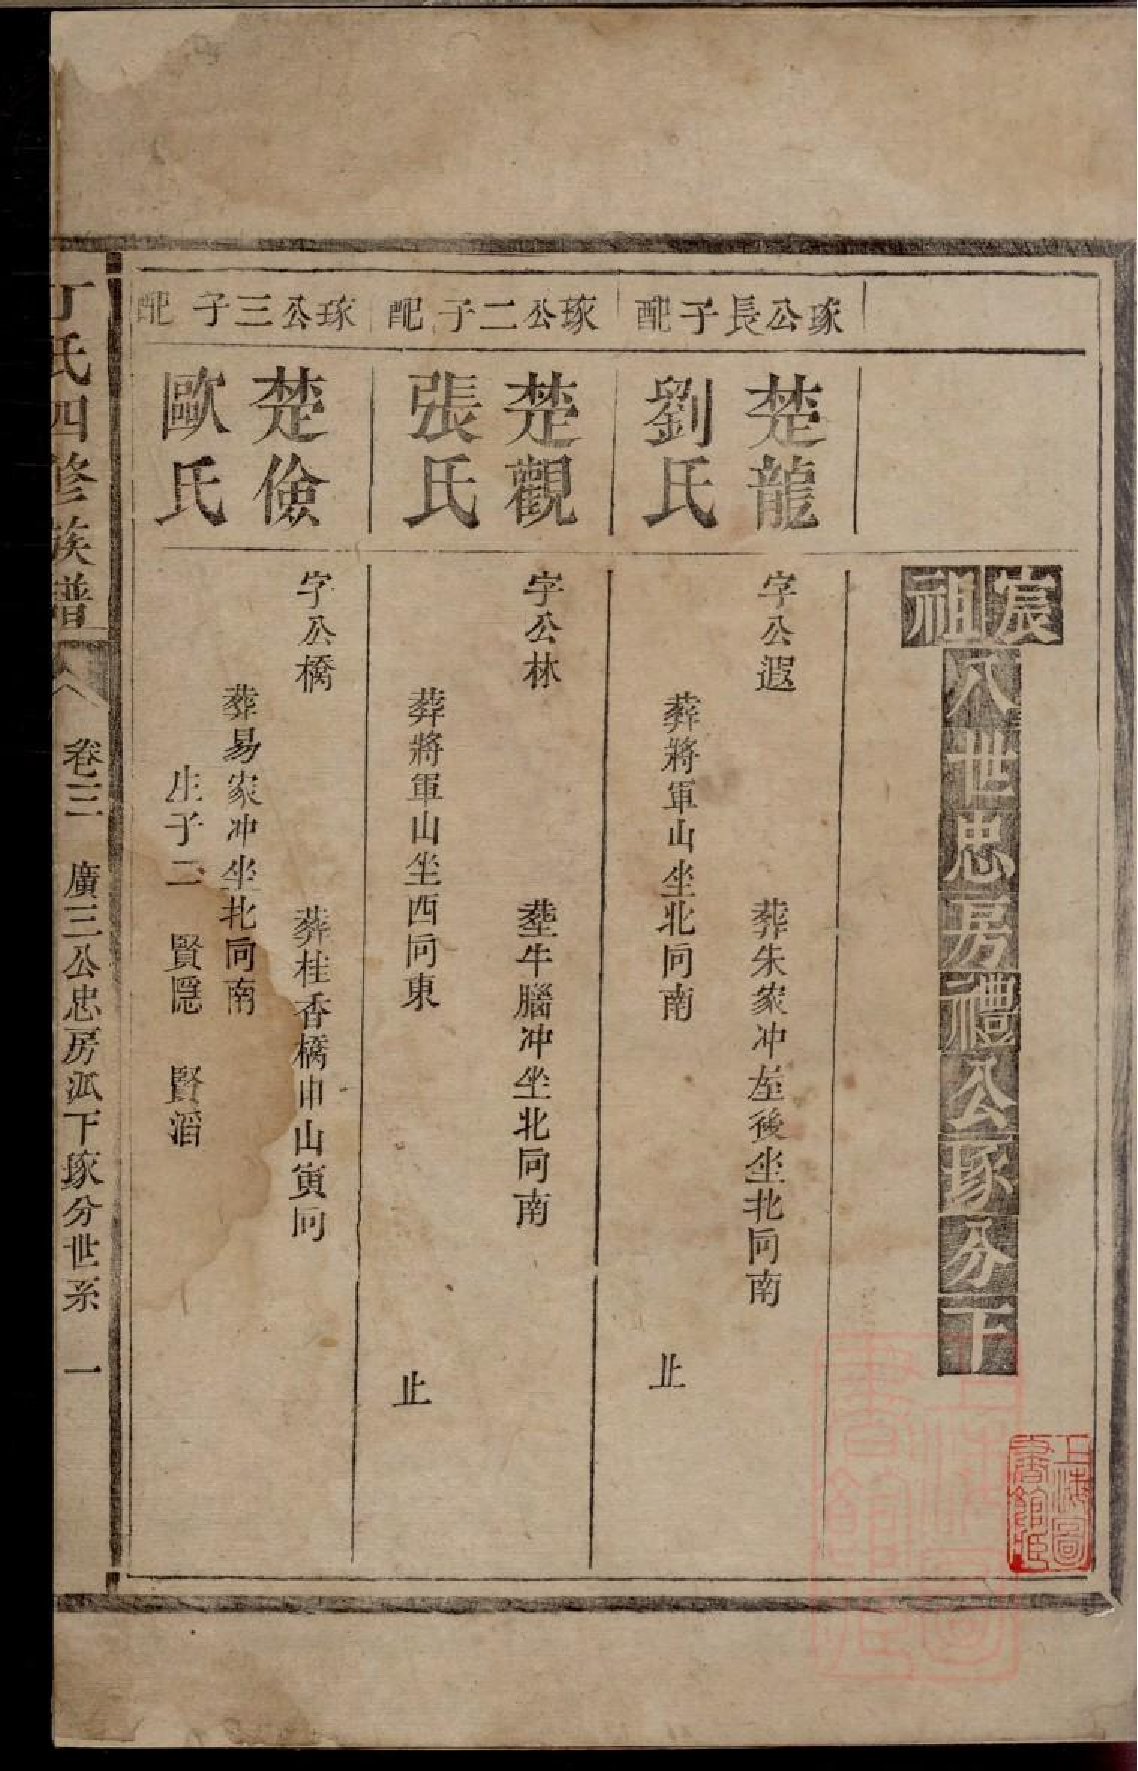 宸祖八世忠房禮公琢分下
琢公長子 配
楚龍
劉氏
字公遐
葬朱家冲屋後坐北向南
葬將軍山坐北向南
止
琢公二子 配
楚觀
張氏
字公林
葬牛腦冲坐北向南
葬將軍山坐西向東
止
琢公三子 配
楚儉
歐氏
字公橋
葬桂香橋申山寅向
葬易家冲坐北向南
生子二 賢隱 賢滔
丁氏四修族譜
卷三 廣三公忠房派下琢分世系 一
上海圖書館藏